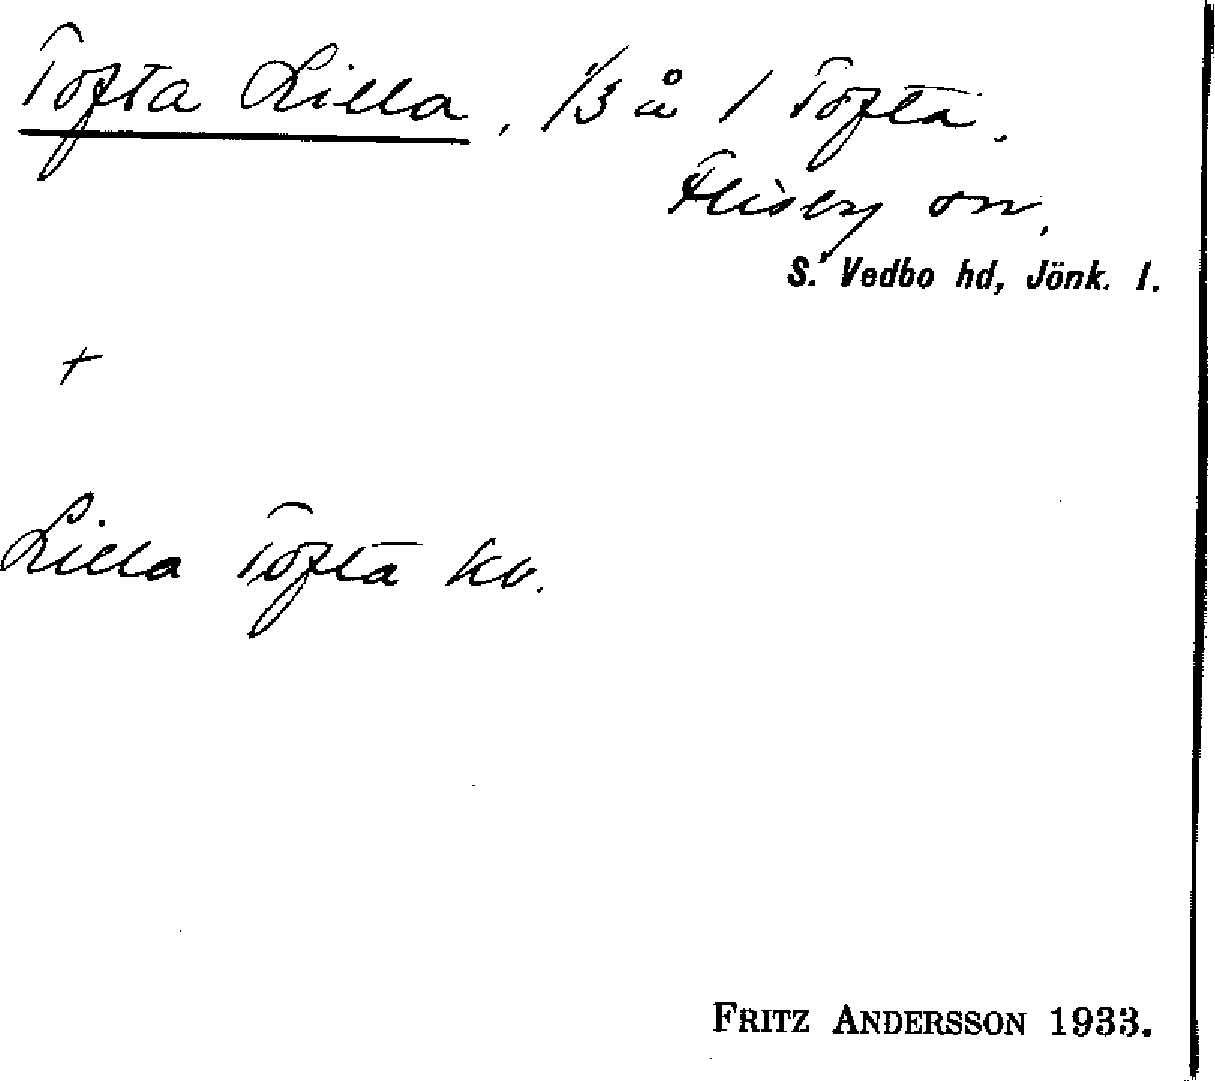 Tofta Lilla, 1/3 å 1 Tofta.
Flisby sn.
S. Vedbo hd, Jönk. l.
+
Lilla Tofta kv.
FRITZ ANDERSSON 1933.